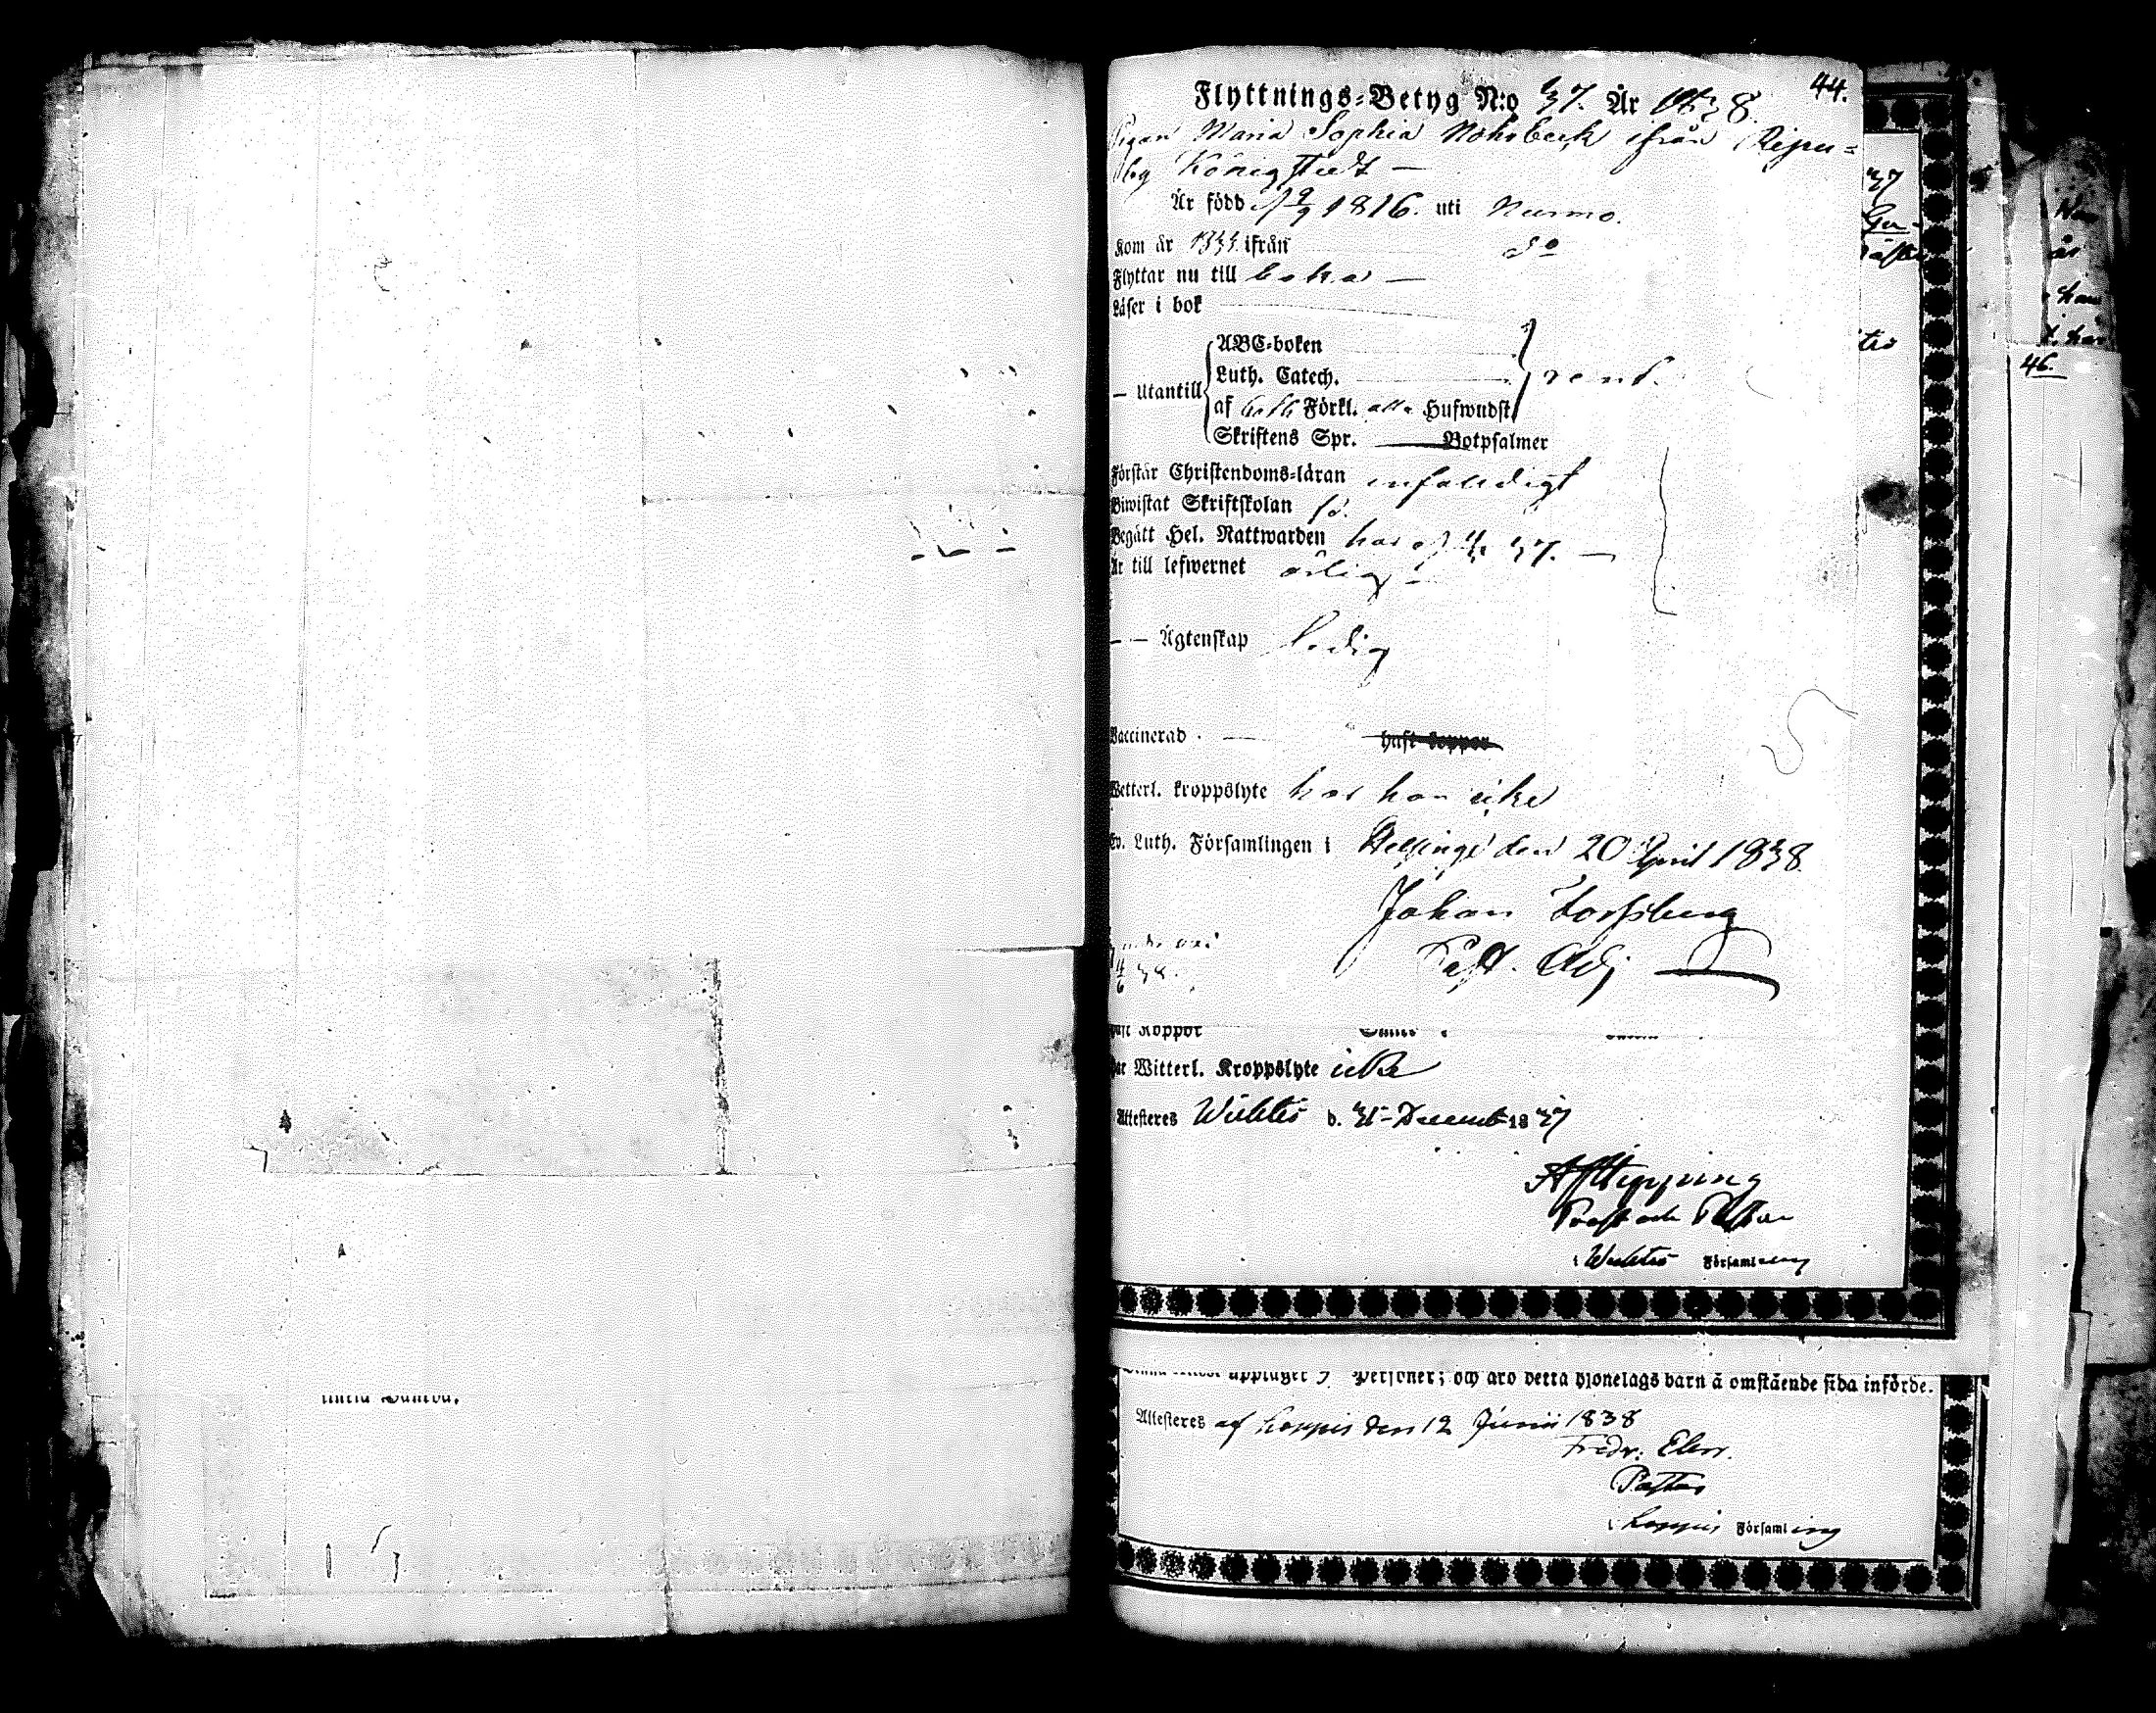 44.
Flyttnings-Betyg N:o 37. År 1838.
Pigan Maria Sophia Nohrbeck ifrån Ripu=
by Königstedt —
Är född d 9/9 1816. uti Nurmo.
Kom år 1833 ifrån do
Flyttar nu till
Läser i bok
— Utantill
ABC-boken
Luth. Catech.
rent.
af Förkl. alla Hufwudst.
Skriftens Spr. Botpsalmer
Förstår Christendoms-läran enfaldigt
Biwistat Skriftskolan
Begått Hel. Nattwarden har 37. —
Är till lefwernet ärlig
— — Ägtenskap ledig
Vaccinerad — haft koppor
Wetterl. kroppslyte har hon icke
Ev. Luth. Församlingen i Helsinge den 20 April 1838.
Johan Forssberg
Past. Adj
38.
haft Koppor
har Witterl. Kroppslyte icke
Attesteres Wichtis d. 31 Decemb 1837
Prost och Pastor
i Wichtis Församling
upptager Personer; och äro detta hjonelags barn å omstående sida införde.
Attesteres af Loppis den 12 Junii 1838
Fredr.
Pastor
i Loppis Församling
37
46.